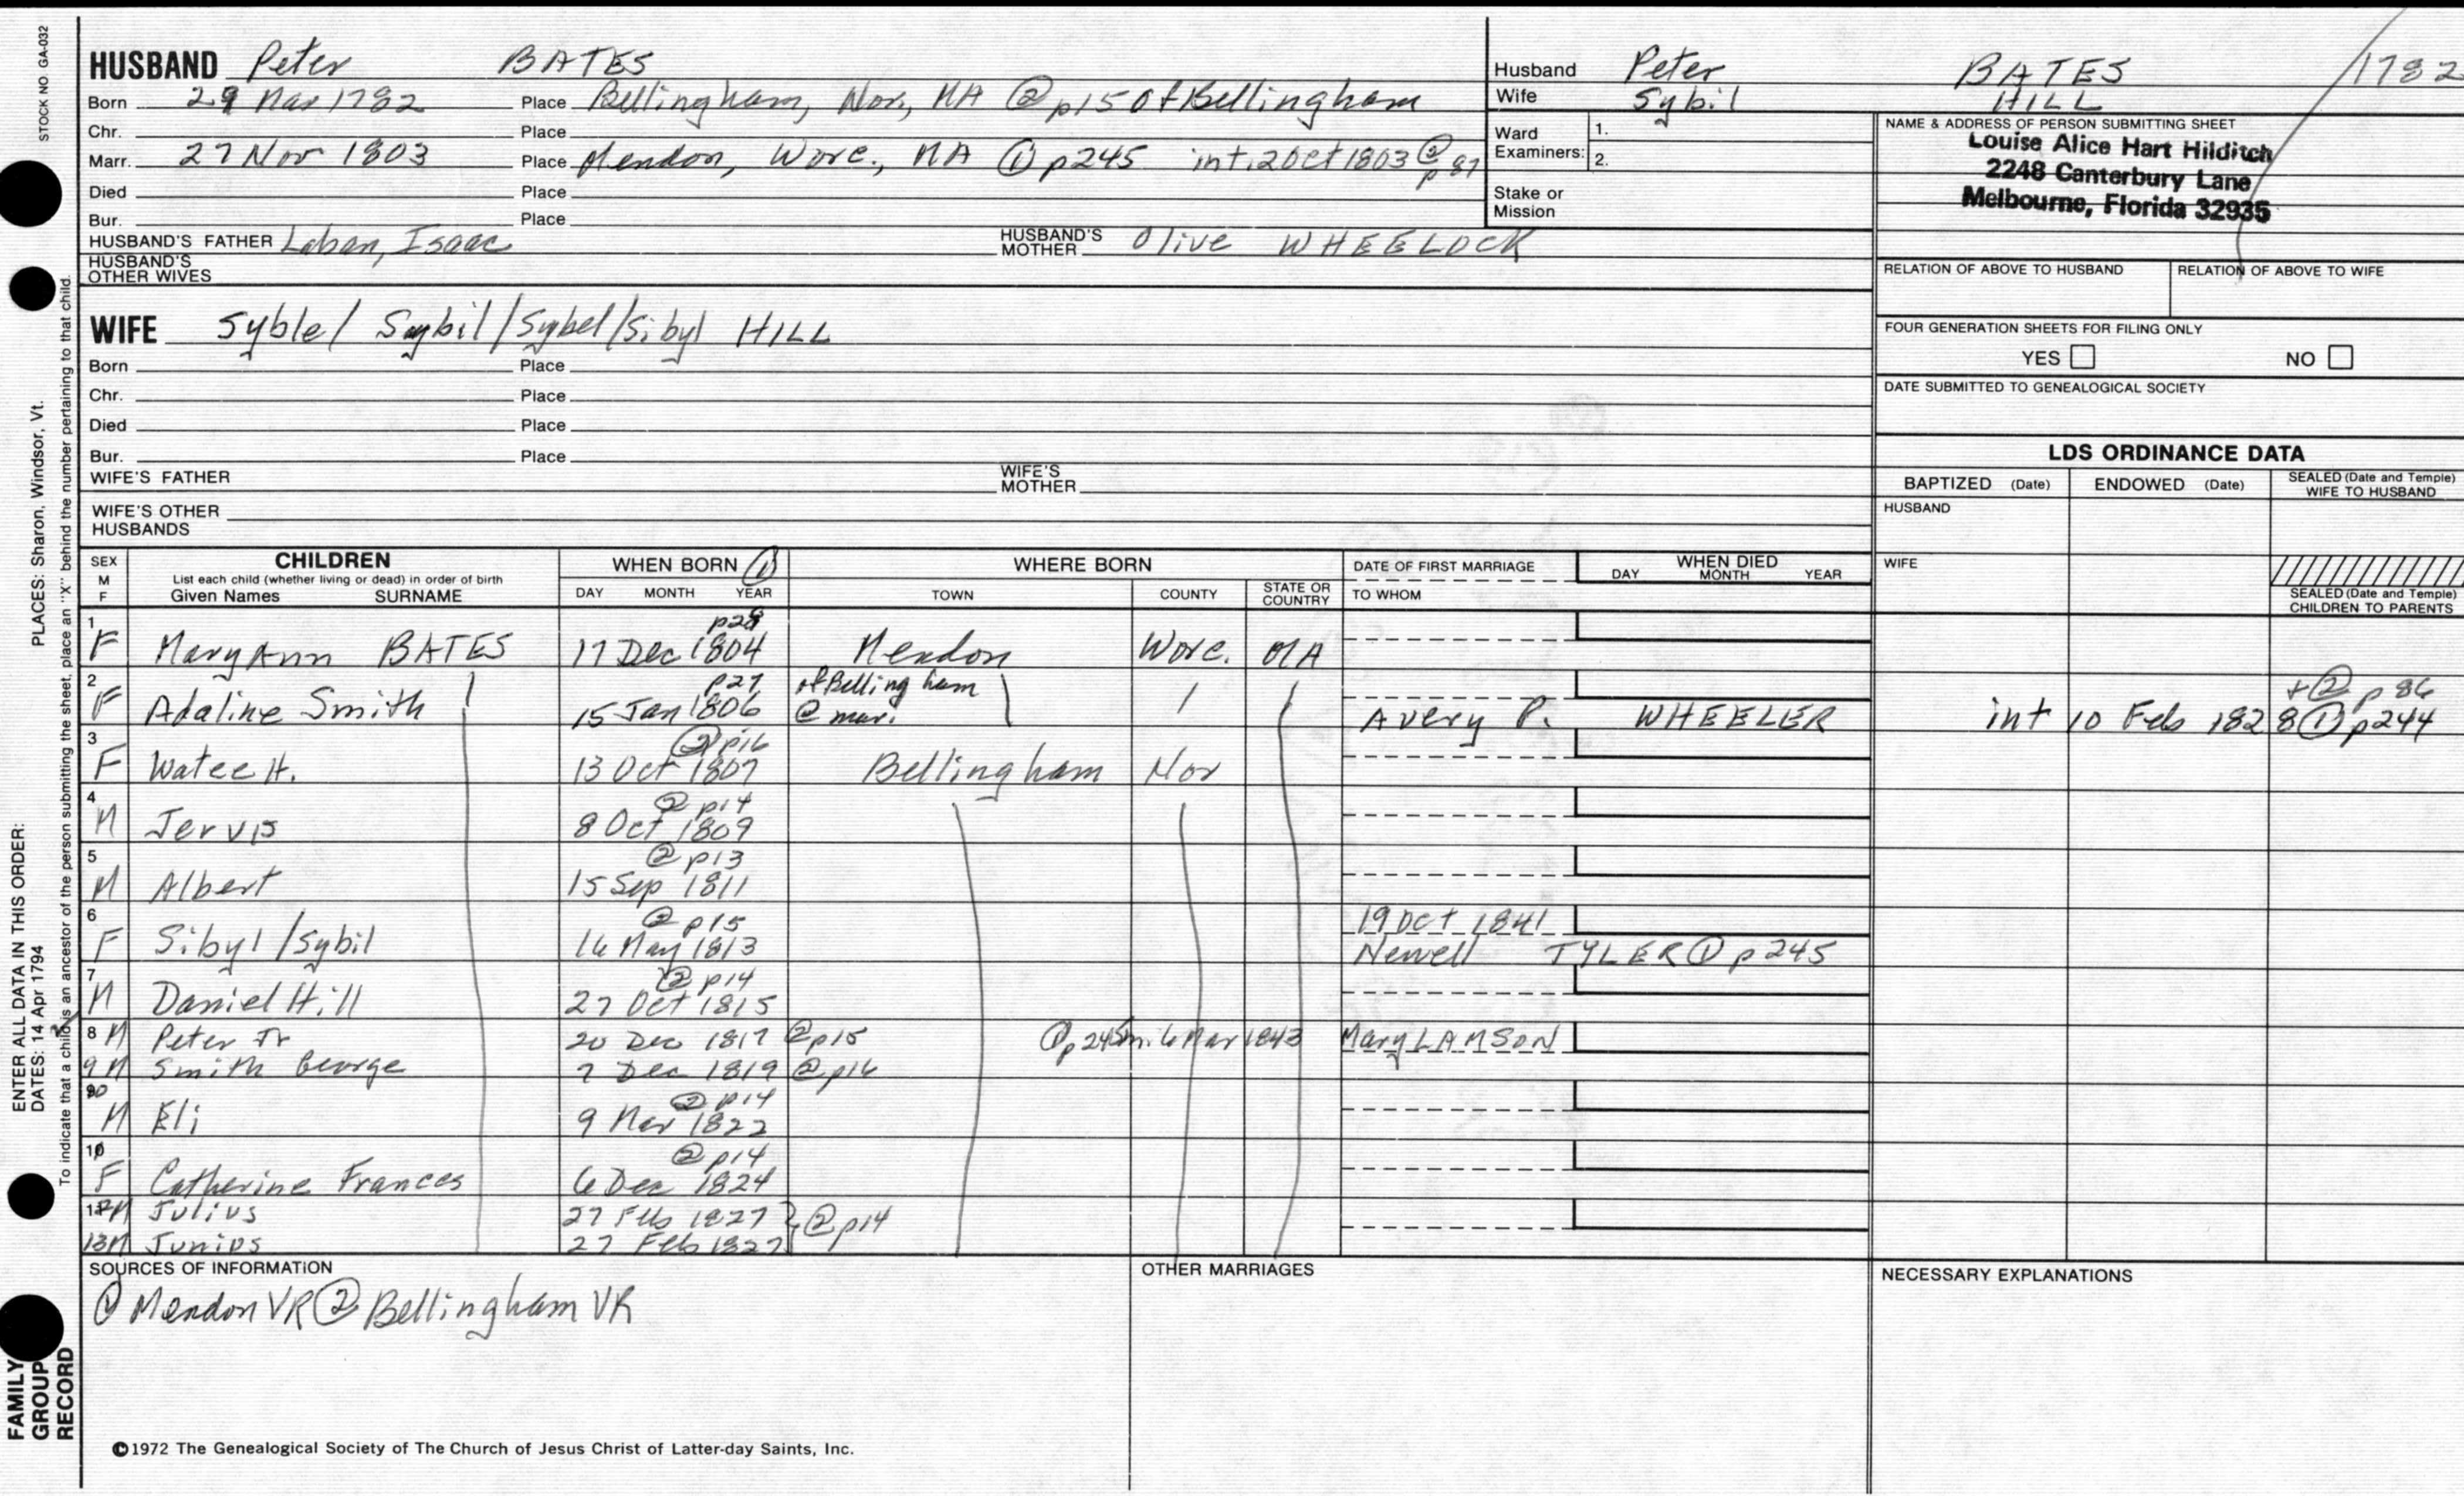 STOCK NO GA-032
HUSBAND Peter BATES
Born 29 Mar 1782 Place Bellingham, Nor., MA ② p15 of Bellingham
Chr. Place
Marr. 27 Nov 1803 Place Mendon, Worc., MA ① p245 int. 2 Oct 1803 ② p 87
Died Place
Bur. Place
HUSBAND'S FATHER Laban, Isaac HUSBAND'S MOTHER Olive WHEELOCK
HUSBAND'S OTHER WIVES
Husband Peter BATES /1782
Wife Sybil HILL
Ward Examiners: 1.
2.
Stake or Mission
NAME & ADDRESS OF PERSON SUBMITTING SHEET
Louise Alice Hart Hilditch
2248 Canterbury Lane
Melbourne, Florida 32935
RELATION OF ABOVE TO HUSBAND RELATION OF ABOVE TO WIFE
FOUR GENERATION SHEETS FOR FILING ONLY
YES NO
DATE SUBMITTED TO GENEALOGICAL SOCIETY
WIFE Syble/ Sybil/Sybel/Sibyl HILL
Born Place
Chr. Place
Died Place
Bur. Place
WIFE'S FATHER WIFE'S MOTHER
WIFE'S OTHER HUSBANDS
LDS ORDINANCE DATA
BAPTIZED (Date) ENDOWED (Date) SEALED (Date and Temple) WIFE TO HUSBAND
HUSBAND
WIFE
SEALED (Date and Temple) CHILDREN TO PARENTS
SEX M F CHILDREN WHEN BORN ① WHERE BORN DATE OF FIRST MARRIAGE WHEN DIED
List each child (whether living or dead) in order of birth
Given Names SURNAME DAY MONTH YEAR TOWN COUNTY STATE OR COUNTRY TO WHOM DAY MONTH YEAR
p28
1 F Mary Ann BATES 17 Dec 1804 Mendon Worc. MA
p27 of Bellingham + ② p 86
2 F Adaline Smith 15 Jan 1806 @ mar. Avery P. WHEELER int 10 Feb 1828 ① p244
② p16
3 F Watee H. 13 Oct 1807 Bellingham Nor
② p14
4 M Jervis 8 Oct 1809
② p13
5 M Albert 15 Sep 1811
② p15 19 Oct 1841
6 F Sibyl/Sybil 16 May 1813 Newell TYLER ① p 245
② p14
7 M Daniel Hill 27 Oct 1815
8 M Peter Jr 20 Dec 1817 ② p15 ① p 245 m. 6 Mar 1843 Mary LAMSON
9 M Smith George 7 Dec 1819 ② p16
② p14
10 M Eli 9 Mar 1822
② p14
F Catherine Frances 6 Dec 1824
12 M Julius 27 Feb 1827 } ② p14
13 M Junius 27 Feb 1827
SOURCES OF INFORMATION OTHER MARRIAGES NECESSARY EXPLANATIONS
① Mendon VR ② Bellingham VR
©1972 The Genealogical Society of The Church of Jesus Christ of Latter-day Saints, Inc.
ENTER ALL DATA IN THIS ORDER:
DATES: 14 Apr 1794 PLACES: Sharon, Windsor, Vt.
To indicate that a child is an ancestor of the person submitting the sheet, place an "X" behind the number pertaining to that child.
FAMILY
GROUP
RECORD